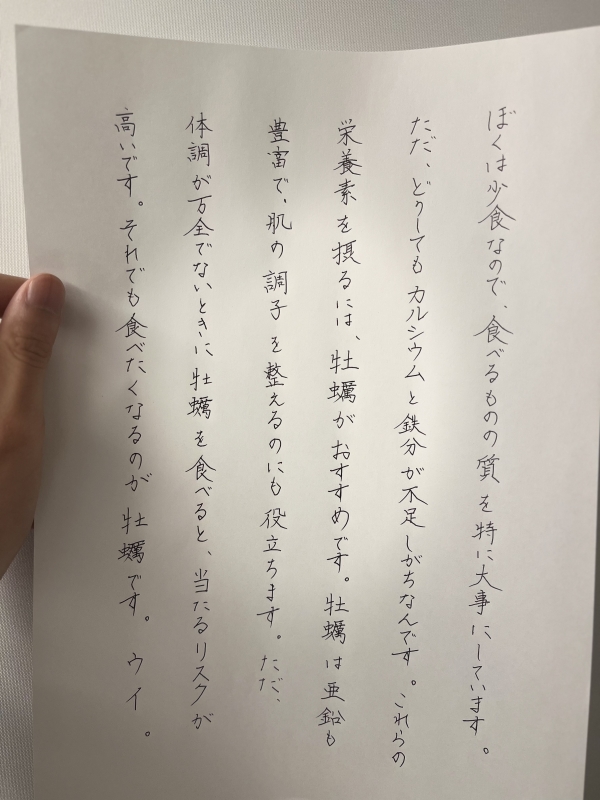 ぼくは少食なので、食べるものの質を特に大事にしています。
ただ、どうしてもカルシウムと鉄分が不足しがちなんです。これらの
栄養素を摂るには、牡蠣がおすすめです。牡蠣は亜鉛も
豊富で、肌の調子を整えるのにも役立ちます。ただ、
体調が万全でないときに牡蠣を食べると、当たるリスクが
高いです。それでも食べたくなるのが牡蠣です。ウイ。